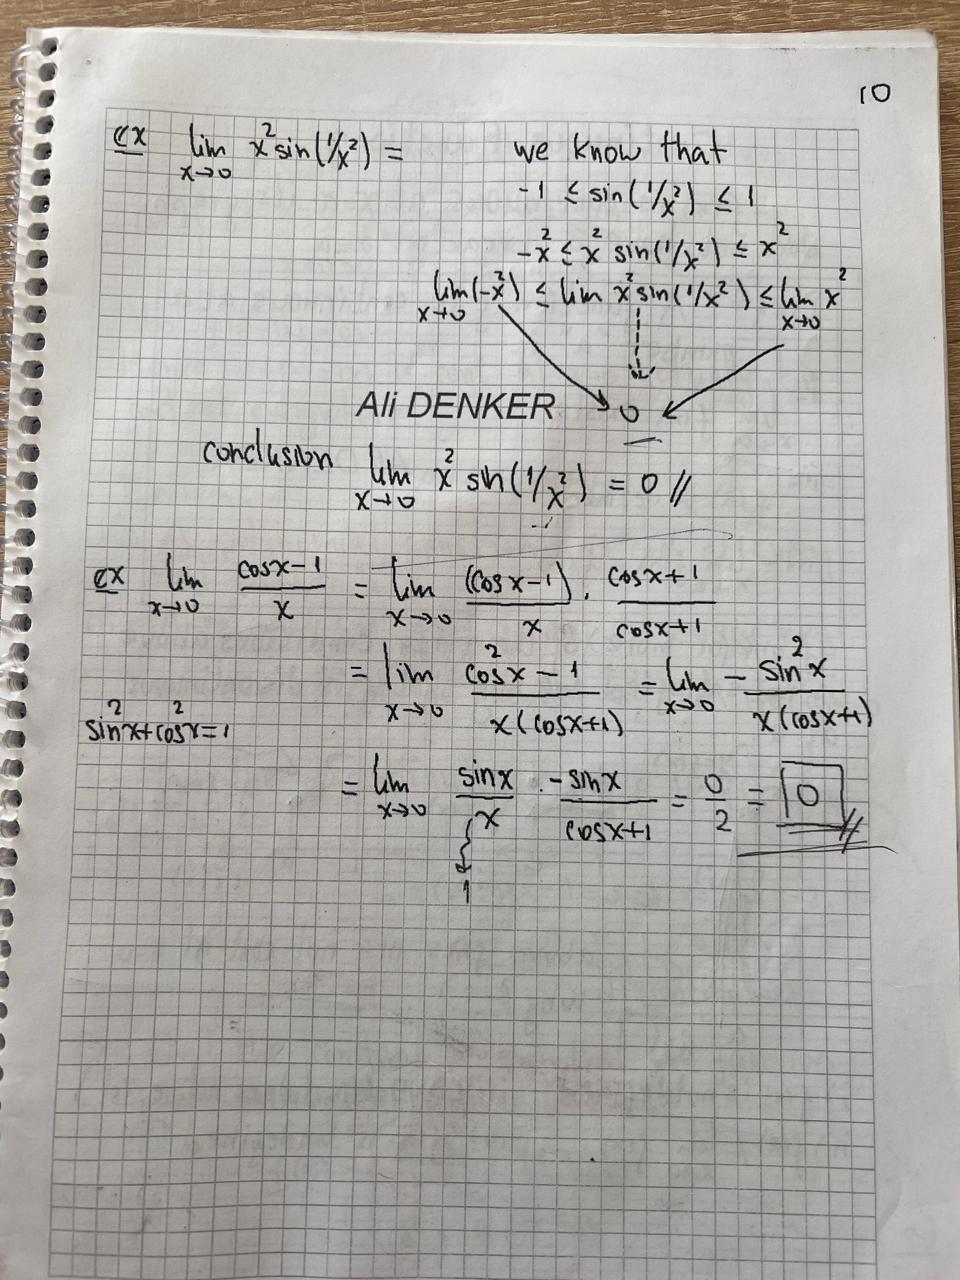 10
ex lim x→0 x² sin(1/x²) = we know that
-1 ≤ sin(1/x²) ≤ 1
-x² ≤ x² sin(1/x²) ≤ x²
lim x→0 (-x²) ≤ lim x² sin(1/x²) ≤ lim x→0 x²
Ali DENKER 0
conclusion lim x→0 x² sin(1/x²) = 0 //
ex lim x→0 (cosx-1)/x = lim x→0 (cosx-1)/x · (cosx+1)/(cosx+1)
= lim x→0 (cos²x - 1)/(x(cosx+1)) = lim x→0 - sin²x/(x(cosx+1))
sin²x+cos²x=1
= lim x→0 sinx/x · -sinx/(cosx+1) = 0/2 = 0 //
1